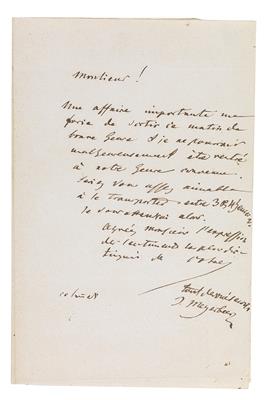 Monsieur!
Une affaire importante me
force de sortir ce matin de
bonne heure & je ne pourrais
malheureusement être rentré
à notre heure convenue.
Seriez Vous assez aimable
à le transporter entre 3 & 4 heures
Je Vous attendrai alors.
Agréez Monsieur l'expression
des sentiments les plus dis-
tingués de Votre
tout dévoué
J Meyerbeer